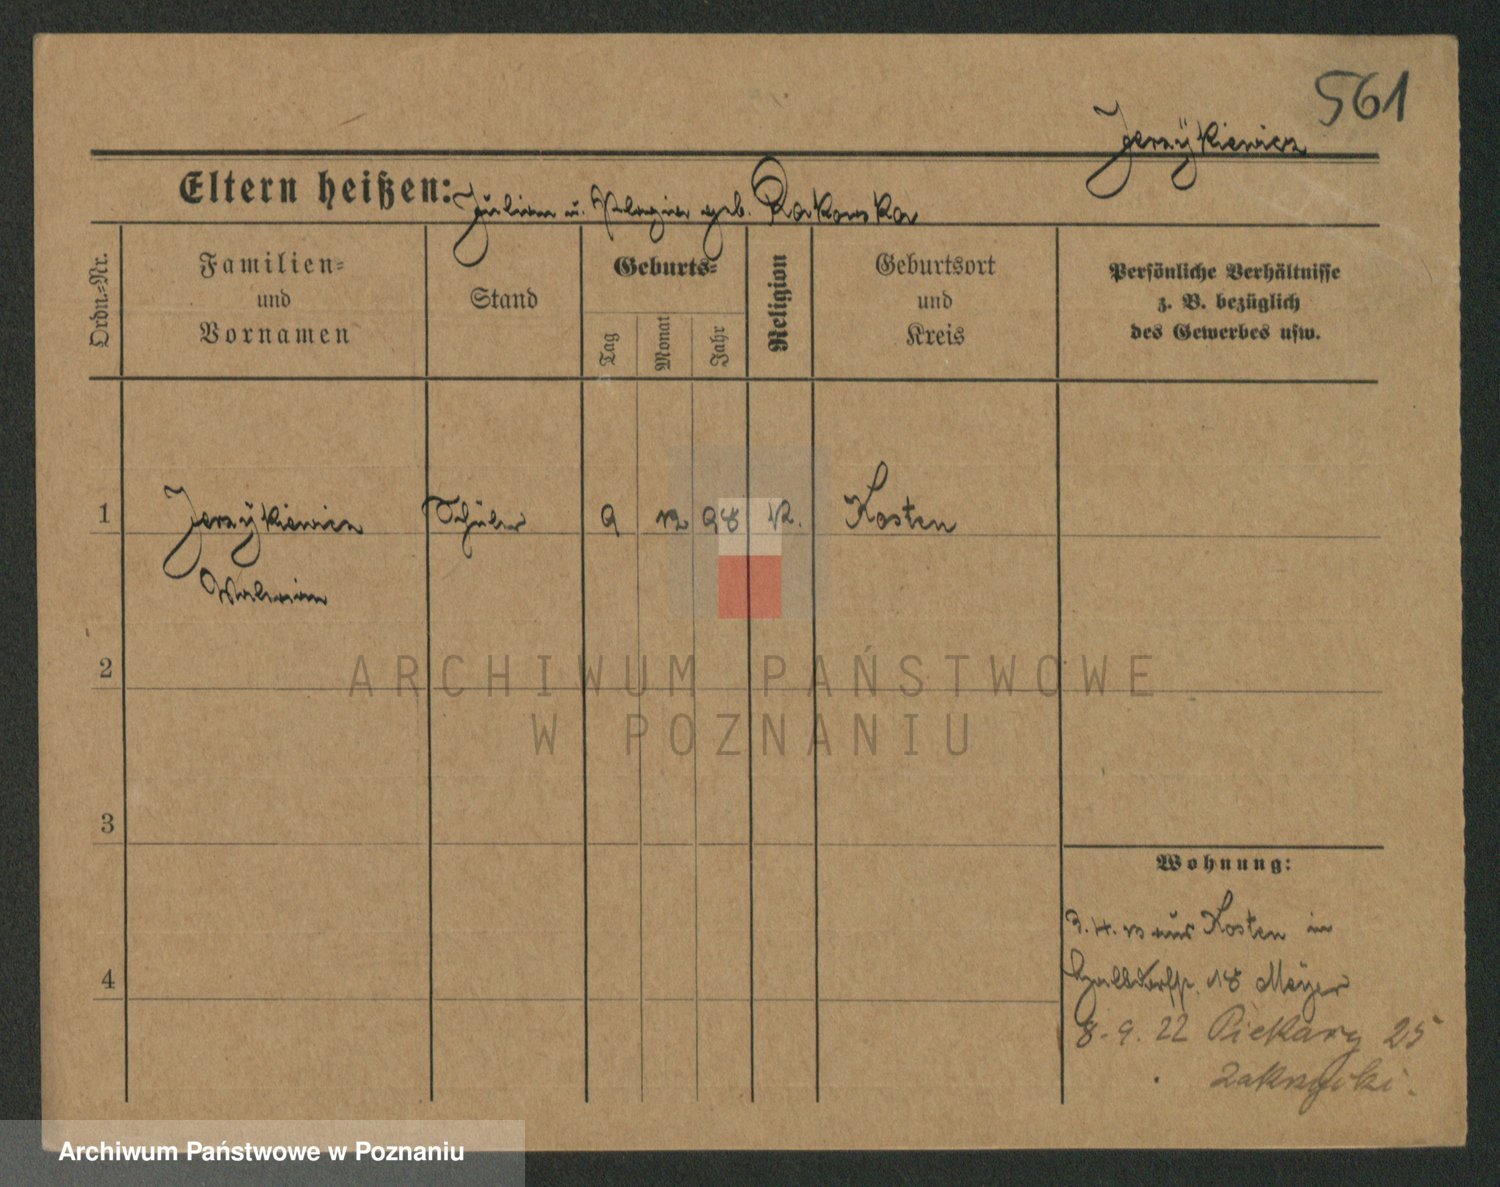 561
Jerzÿkiewicz
Eltern heißen: Julian u. Pelagia geb. Rakowska
Ordn.=Nr.
Familien=
und
Vornamen
Stand
Geburts=
Tag
Monat
Jahr
Religion
Geburtsort
und
Kreis
Persönliche Verhältnisse
z. B. bezüglich
des Gewerbes usw.
1 Jerzÿkiewicz Schüler 9 12 98 K. Kosten
Walerian
2
3
4
Wohnung:
3.4.13 aus Kosten in
18 Meÿer
8.9.22 Piekary 25
ARCHIWUM PAŃSTWOWE
W POZNANIU
Archiwum Państwowe w Poznaniu